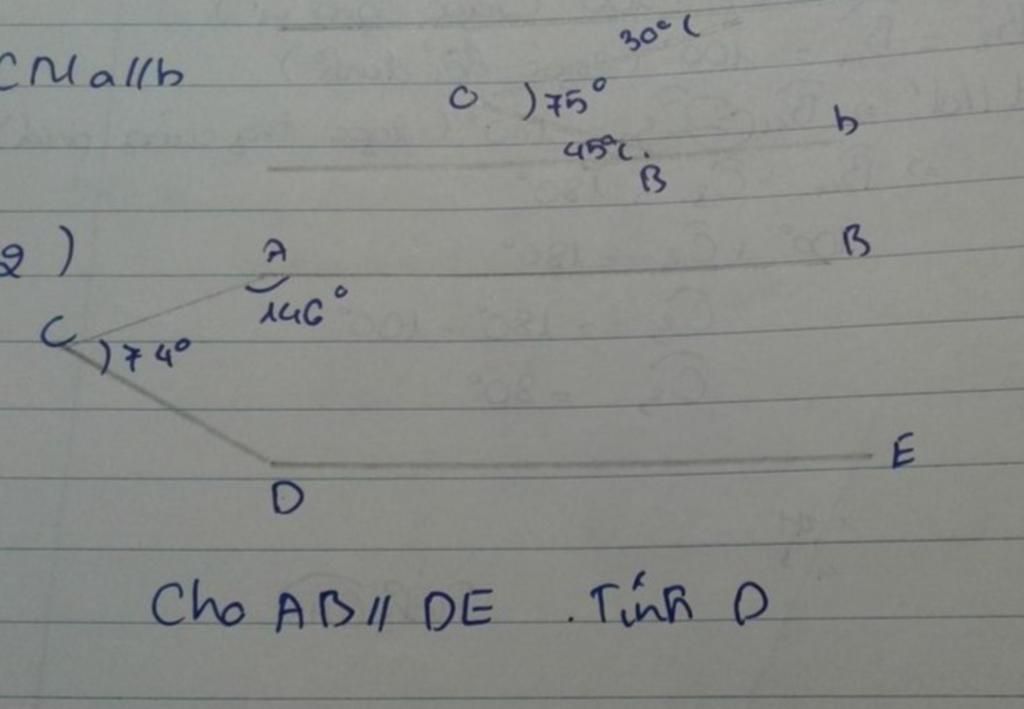 30°
CM a//b
O 75°
b
45°
B
2)
A B
146°
C
74°
E
D
Cho AB // DE . Tính D